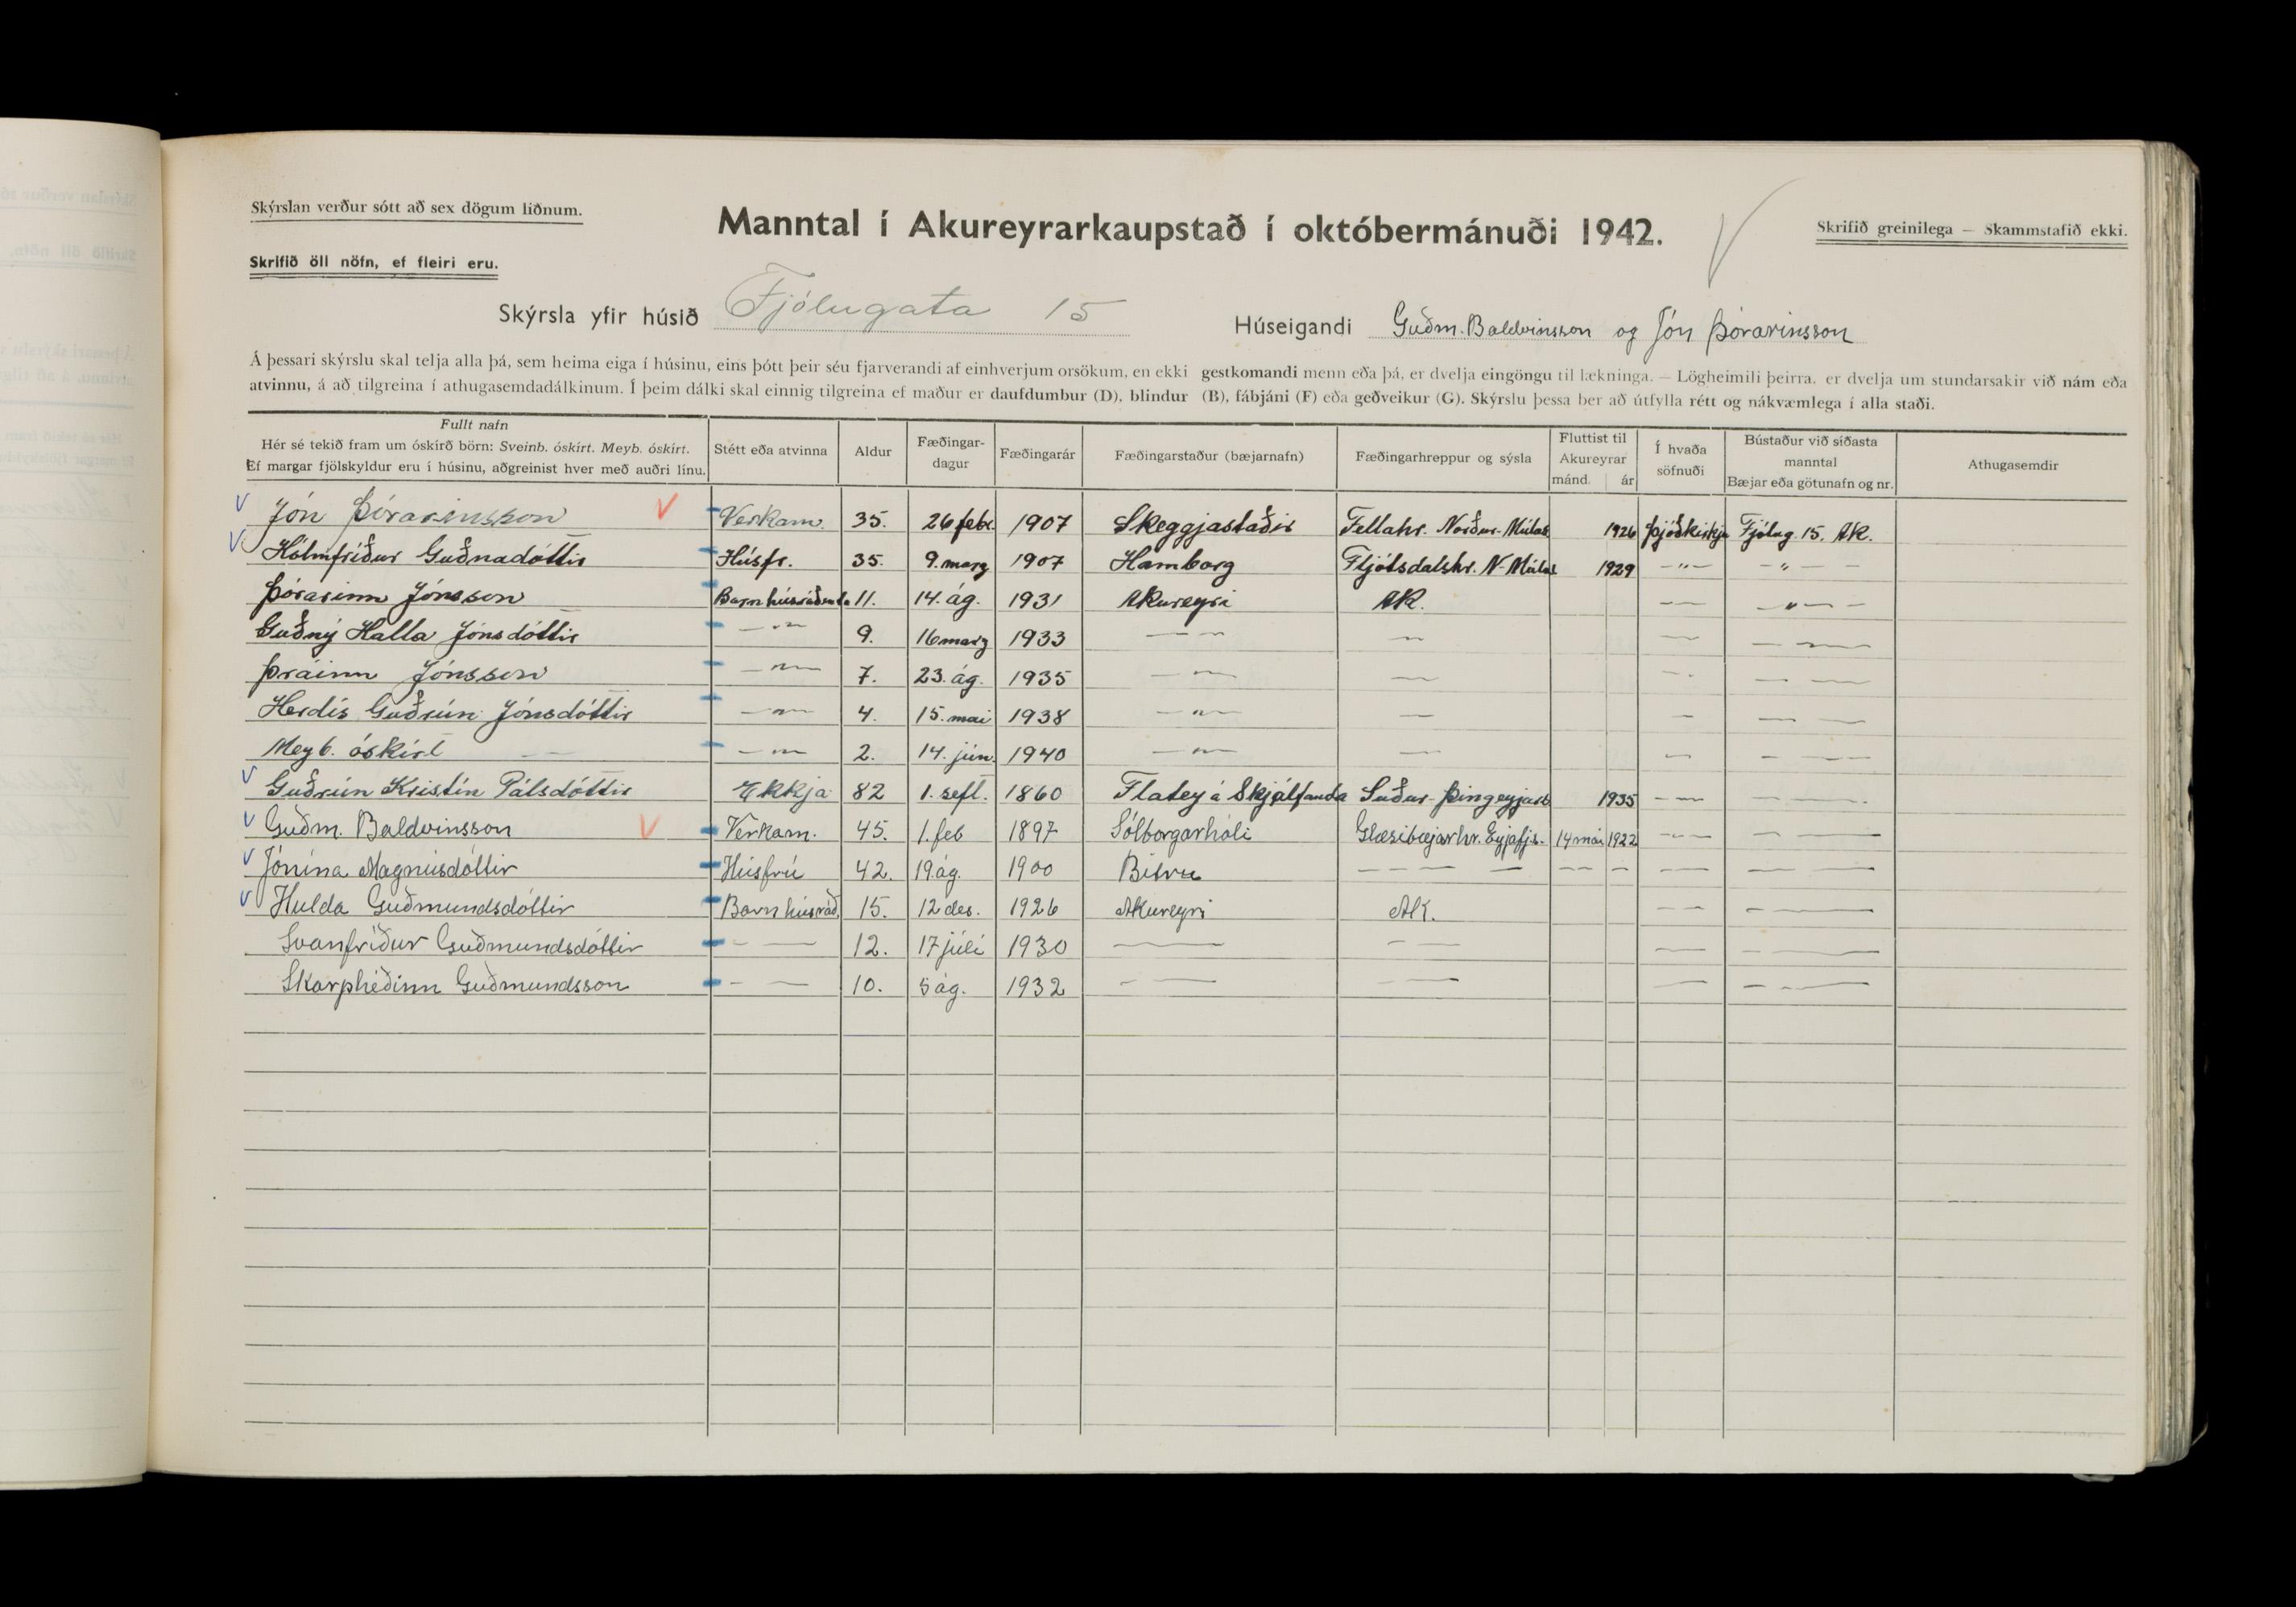 Skýrslan verður sótt að sex dögum liðnum.
Manntal í Akureyrarkaupstað í októbermánuði 1942.
Skrifið greinilega — Skammstafið ekki.
Skrifið öll nöfn, ef fleiri eru.
Skýrsla yfir húsið Fjólugata 15
Húseigandi Guðm. Baldvinsson og Jón Þórarinsson
Á þessari skýrslu skal telja alla þá, sem heima eiga í húsinu, eins þótt þeir séu fjarverandi af einhverjum orsökum, en ekki gestkomandi menn eða þá, er dvelja eingöngu til lækninga. — Lögheimili þeirra, er dvelja um stundarsakir við nám eða
atvinnu, á að tilgreina í athugasemdadálkinum. Í þeim dálki skal einnig tilgreina ef maður er daufdumbur (D), blindur (B), fábjáni (F) eða geðveikur (G). Skýrslu þessa ber að útfylla rétt og nákvæmlega í alla staði.
Fullt nafn
Hér sé tekið fram um óskírð börn: Sveinb. óskírt. Meyb. óskírt.
Ef margar fjölskyldur eru í húsinu, aðgreinist hver með auðri línu.
Stétt eða atvinna
Aldur
Fæðingar-
dagur
Fæðingarár
Fæðingarstaður (bæjarnafn)
Fæðingarhreppur og sýsla
Fluttist til
Akureyrar
mánd. ár
Í hvaða
söfnuði
Bústaður við síðasta
manntal
Bæjar eða götunafn og nr.
Athugasemdir
Jón Þórarinsson Verkam. 35. 26 febr. 1907 Skeggjastaðir Fellahr. Norður-Múlas 1926 Þjóðkirkju Fjólug. 15. Ak.
Hólmfríður Guðnadóttir Húsfr. 35. 9. marz 1907 Hamborg Fljótsdalshr. N-Múlas 1929 -"- -"- —
Þórarinn Jónsson Barn húsráðenda 11. 14. ág. 1931 Akureyri AK. — -"- —
Guðný Halla Jónsdóttir -"- 9. 16 marz 1933 — — — — —
Þráinn Jónsson -"- 7. 23. ág. 1935 -"- — — — —
Herdís Guðrún Jónsdóttir -"- 4. 15. mai 1938 -"- — — — —
Meyb. óskírt -"- 2. 14. jún. 1940 -"- — — — —
Guðrún Kristín Pálsdóttir Ekkja 82 1. sept. 1860 Flatey á Skjálfanda Suður-Þingeyjars 1935 — — —
Guðm. Baldvinsson Verkam. 45. 1. feb 1897 Sólborgarhóli Glæsibæjarhr. Eyjafjs. 14 mai 1922 — — —
Jónína Magnúsdóttir Húsfrú 42. 19 ág. 1900 Bitru — — — — — — — — —
Hulda Guðmundsdóttir Barn húsráð. 15. 12 des. 1926 Akureyri AK. — — —
Svanfríður Guðmundsdóttir — — 12. 17 júlí 1930 — — — — — —
Skarphéðinn Guðmundsson — — 10. 5 ág. 1932 — — — — — — —